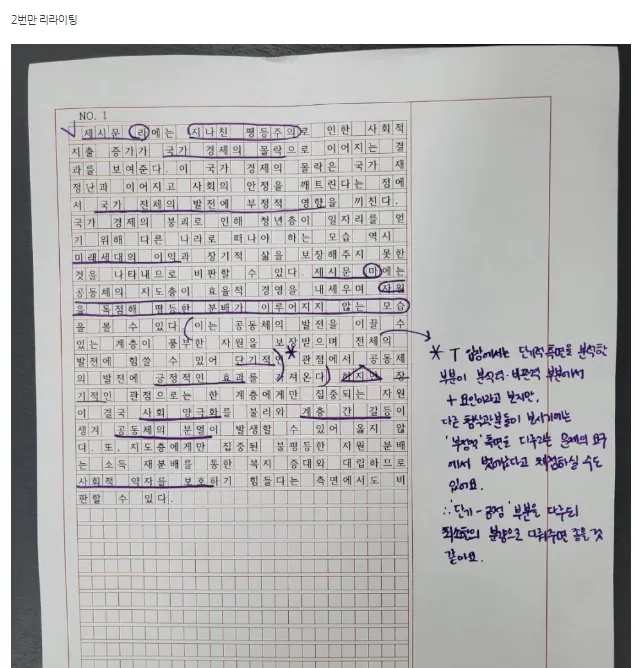 2번만 리라이팅
NO. 1
제시문 라에는 지나친 평등주의로 인한 사회적
지출 증가가 국가 경제의 몰락으로 이어지는 결
과를 보여준다. 이 국가 경제의 몰락은 국가 재
정난과 이어지고 사회의 안정을 깨트린다는 점에
서 국가 전체의 발전에 부정적 영향을 끼친다.
국가 경제의 붕괴로 인해 청년층이 일자리를 얻
기 위해 다른 나라로 떠나야 하는 모습 역시
미래세대의 이익과 장기적 삶을 보장해주지 못한
것을 나타내므로 비판할 수 있다. 제시문 마에는
공동체의 지도층이 효율적 경영을 내세우며 자원
을 독점해 평등한 분배가 이루어지지 않는 모습
을 볼 수 있다. 이는 공동체의 발전을 이끌 수
있는 계층이 풍부한 자원을 보장받으며 전체의
발전에 힘쓸 수 있어 단기적인 관점에서 공동체
의 발전에 긍정적인 효과를 가져온다. 하지만 장
기적인 관점으로는 한 계층에게만 집중되는 자원
이 결국 사회 양극화를 불러와 계층 간 갈등이
생겨 공동체의 분열이 발생할 수 있어 옳지 않
다. 또, 지도층에게만 집중된 불평등한 자원 분배
는 소득 재분배를 통한 복지 증대와 대립하므로
사회적 약자를 보호하기 힘들다는 측면에서도 비
판할 수 있다.
* T 입장에서는 단기적 측면을 분석한
부분이 분석력·비판력 부분에서
+ 요인이라고 보지만,
다른 첨삭자분들이 보시기에는
'부정적' 측면을 다루라는 문제의 요구
에서 벗어났다고 채점하실 수도
있어요.
∴ '단기-긍정' 부분을 다루되
최소한의 분량으로 다뤄주면 좋을 것
같아요.